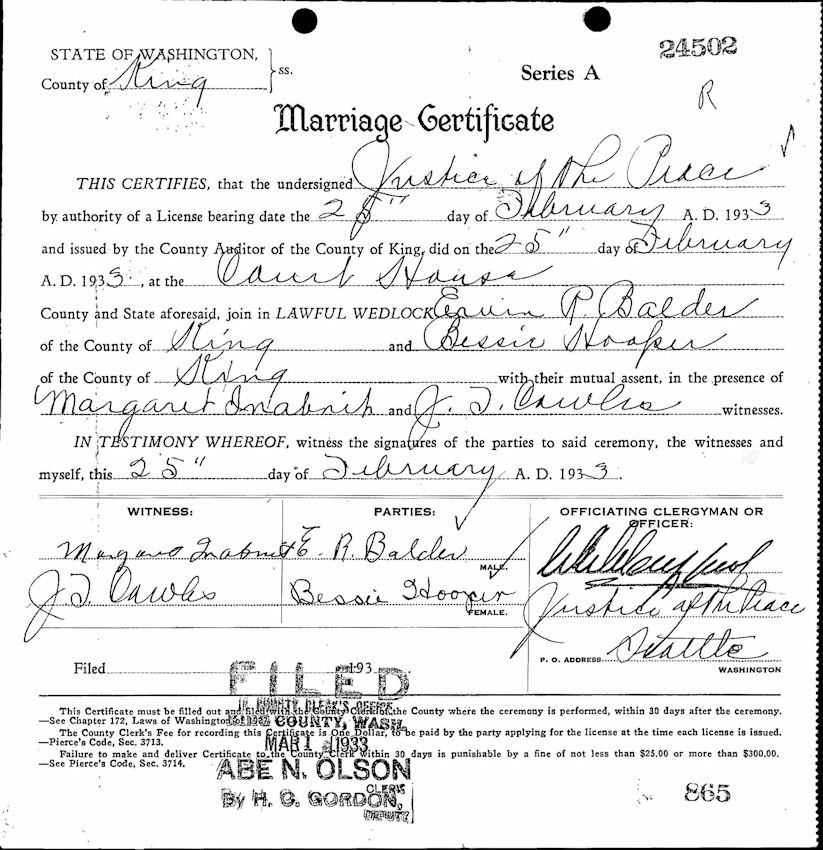 STATE OF WASHINGTON, } ss.
24502
County of King
Series A
R
Marriage Certificate
THIS CERTIFIES, that the undersigned Justice of the Peace
by authority of a License bearing date the 25" day of February A. D. 1933
and issued by the County Auditor of the County of King, did on the 25" day of February
A. D. 1933, at the Court House
County and State aforesaid, join in LAWFUL WEDLOCK Erwin R. Balder
of the County of King and Bessie Hooper
of the County of King with their mutual assent, in the presence of
Margaret Inabnit and J. T. Cowles witnesses.
IN TESTIMONY WHEREOF, witness the signatures of the parties to said ceremony, the witnesses and
myself, this 25" day of February A. D. 1933.
WITNESS: PARTIES: OFFICIATING CLERGYMAN OR OFFICER:
Margaret Inabnit E. R. Balder MALE.
J. T. Cowles Bessie Hooper FEMALE. Justice of the Peace
P. O. ADDRESS Seattle WASHINGTON
Filed 193
FILED
This Certificate must be filled out and filed with the County Clerk of the County where the ceremony is performed, within 30 days after the ceremony.
IN COUNTY CLERK'S OFFICE
—See Chapter 172, Laws of Washington
COUNTY, WASH.
The County Clerk's Fee for recording this Certificate is One Dollar, to be paid by the party applying for the license at the time each license is issued.
—Pierce's Code, Sec. 3713.
MAR 1 1933
Failure to make and deliver Certificate to the County Clerk within 30 days is punishable by a fine of not less than $25.00 or more than $300.00.
—See Pierce's Code, Sec. 3714.
ABE N. OLSON
CLERK
By H. C. GORDON,
DEPUTY
865